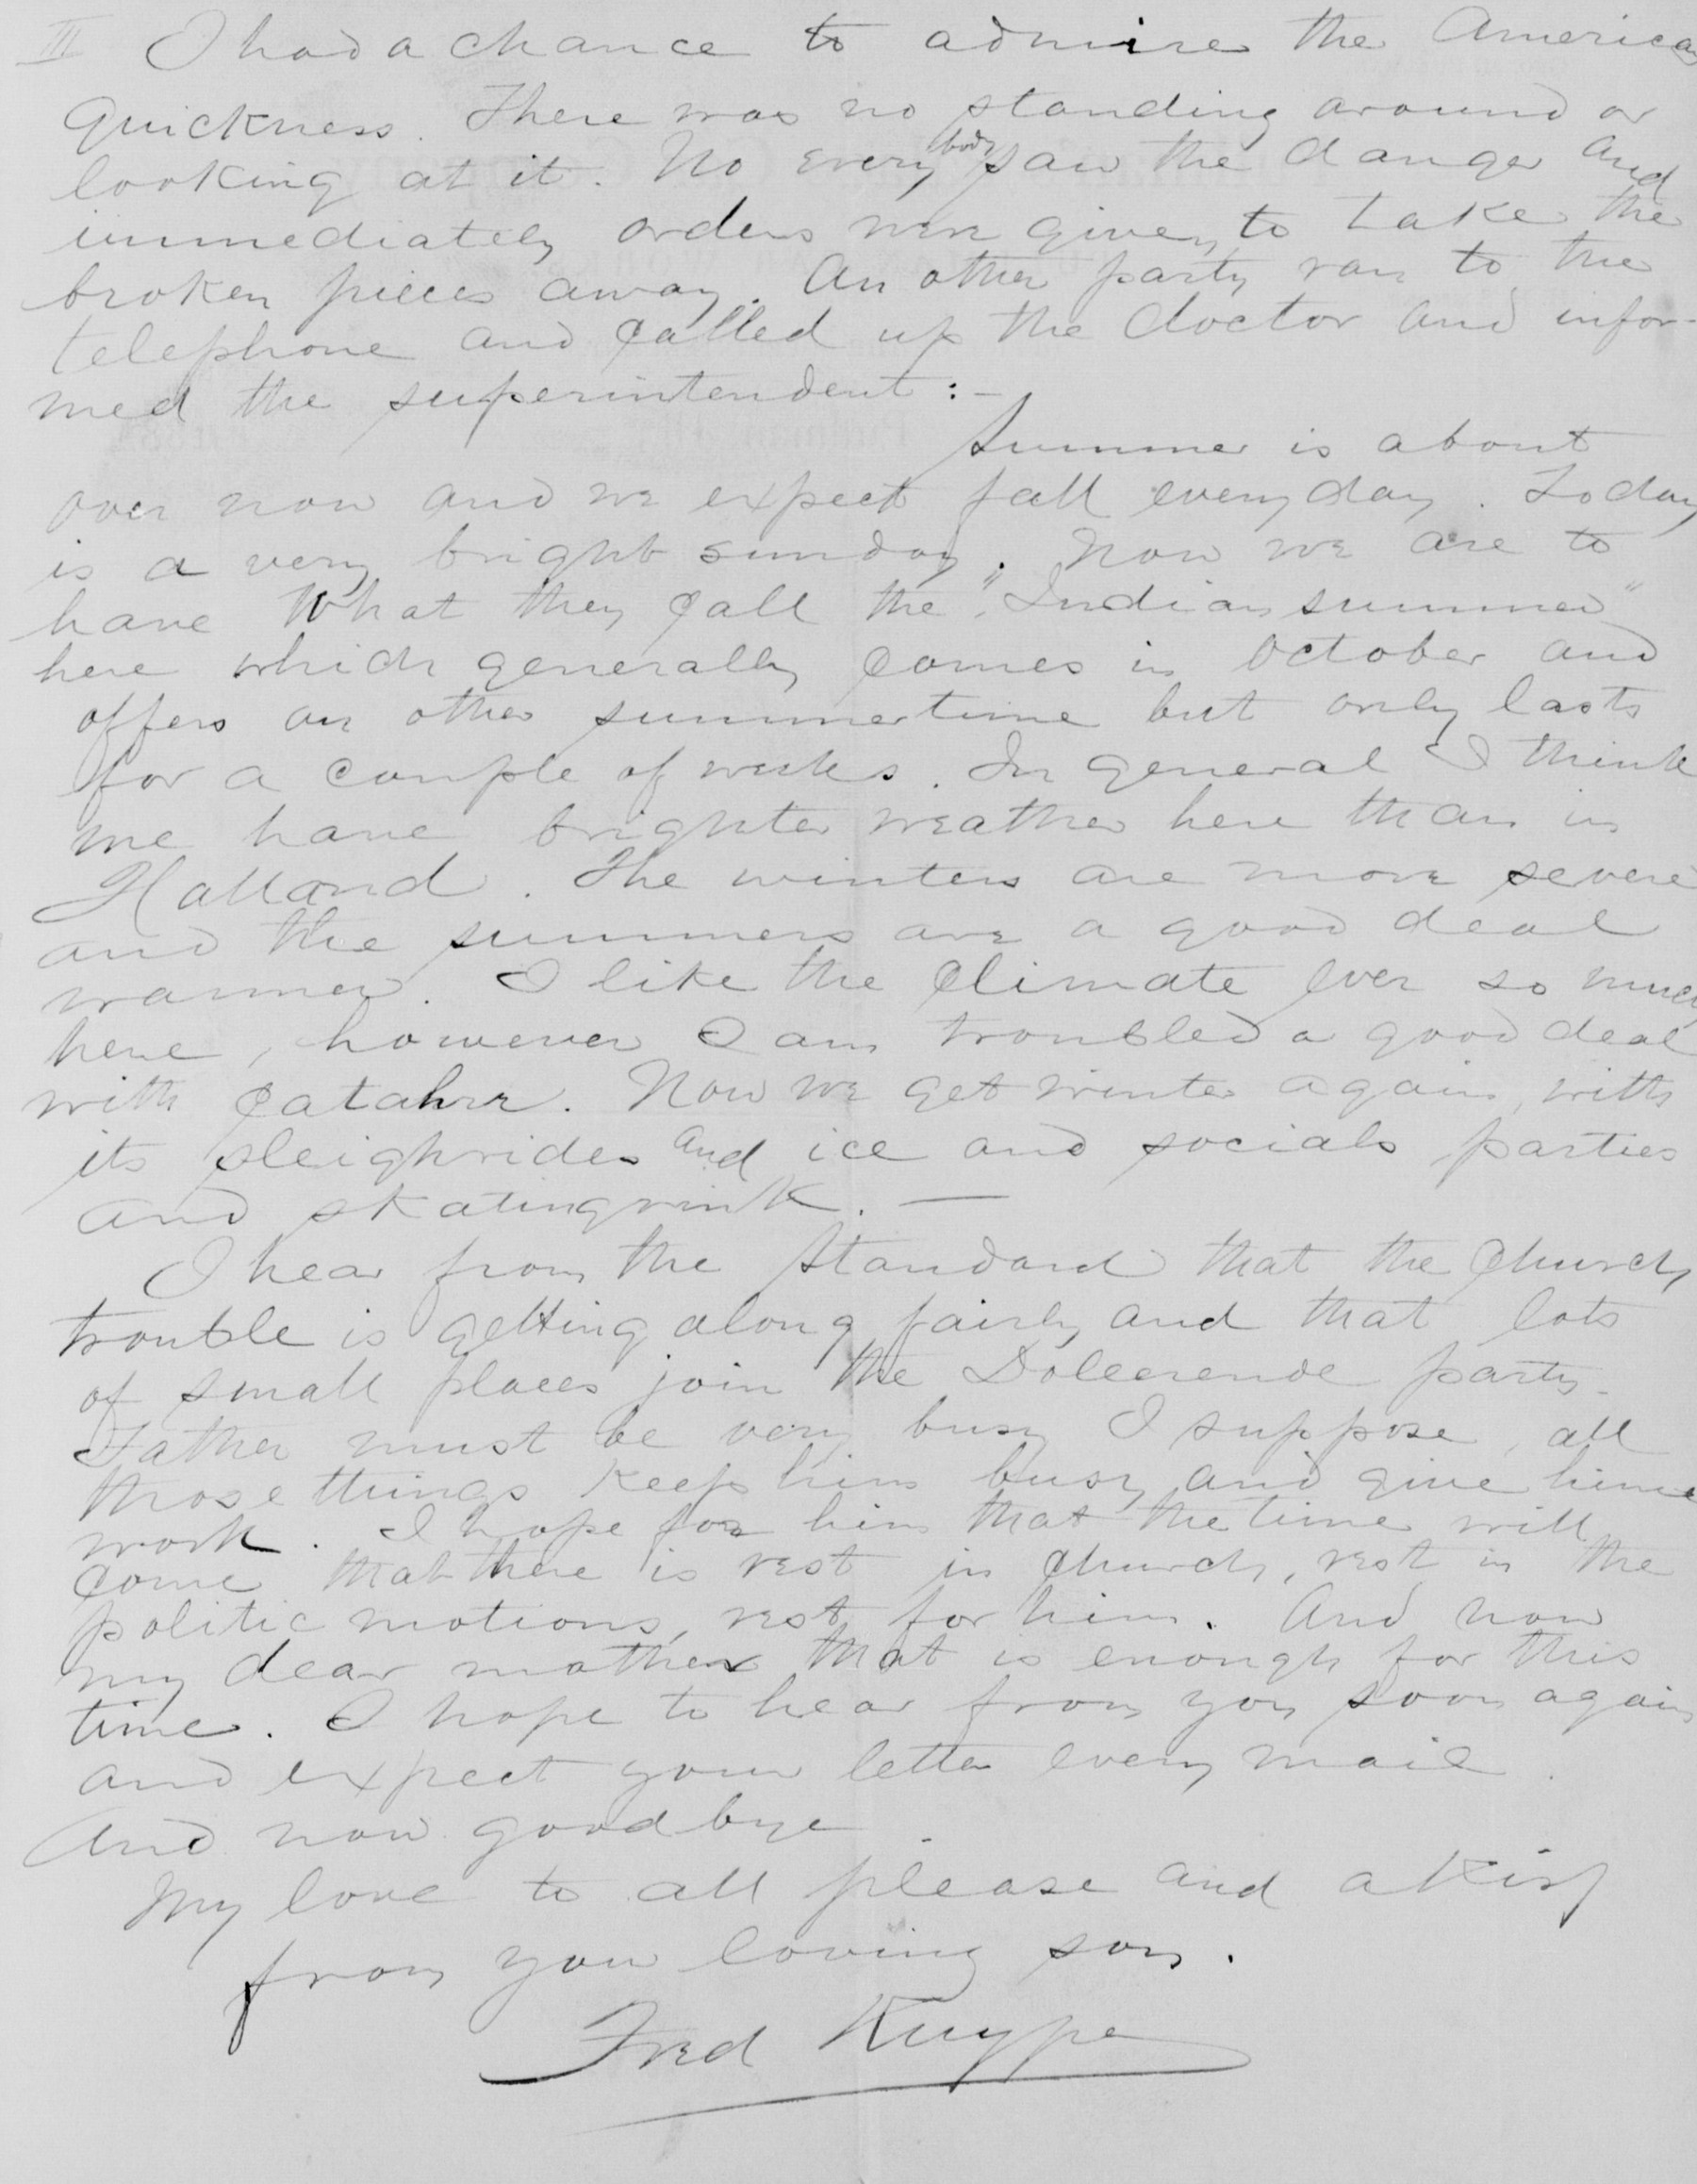 III I had a chance to admire the American
quickness. There was no standing around or
looking at it. No everybody saw the danger and
immediately orders were given to take the
broken pieces away. An other party ran to the
telephone and called up the doctor and infor-
med the superintendent:-
Summer is about
over now and we expect fall everyday. Today
is a very bright sunday. Now we are to
have what they call the "Indian summer"
here which generally comes in October and
offers an other summertime but only lasts
for a couple of weeks. In general I think
we have brighter weather here than in
Holland. The winters are more severe
and the summers are a good deal
warmer. I like the climate ever so much
here, however I am troubled a good deal
with catahrr. Now we get winter again, with
its sleighrides and ice and socials parties
and skatingrink. —
I hear from the Standard that the church
trouble is getting along fairly and that lots
of small places join the Doleerende party.
Father must be very busy I suppose, all
those things keep him busy and give him
work. I hope for him that the time will
come that there is rest in church, rest in the
politic motions, rest for him. And now
my dear mother that is enough for this
time. I hope to hear from you soon again
and expect your letter every mail.
And now goodbye
My love to all please and a kiss
from you loving son.
Fred Kuyper